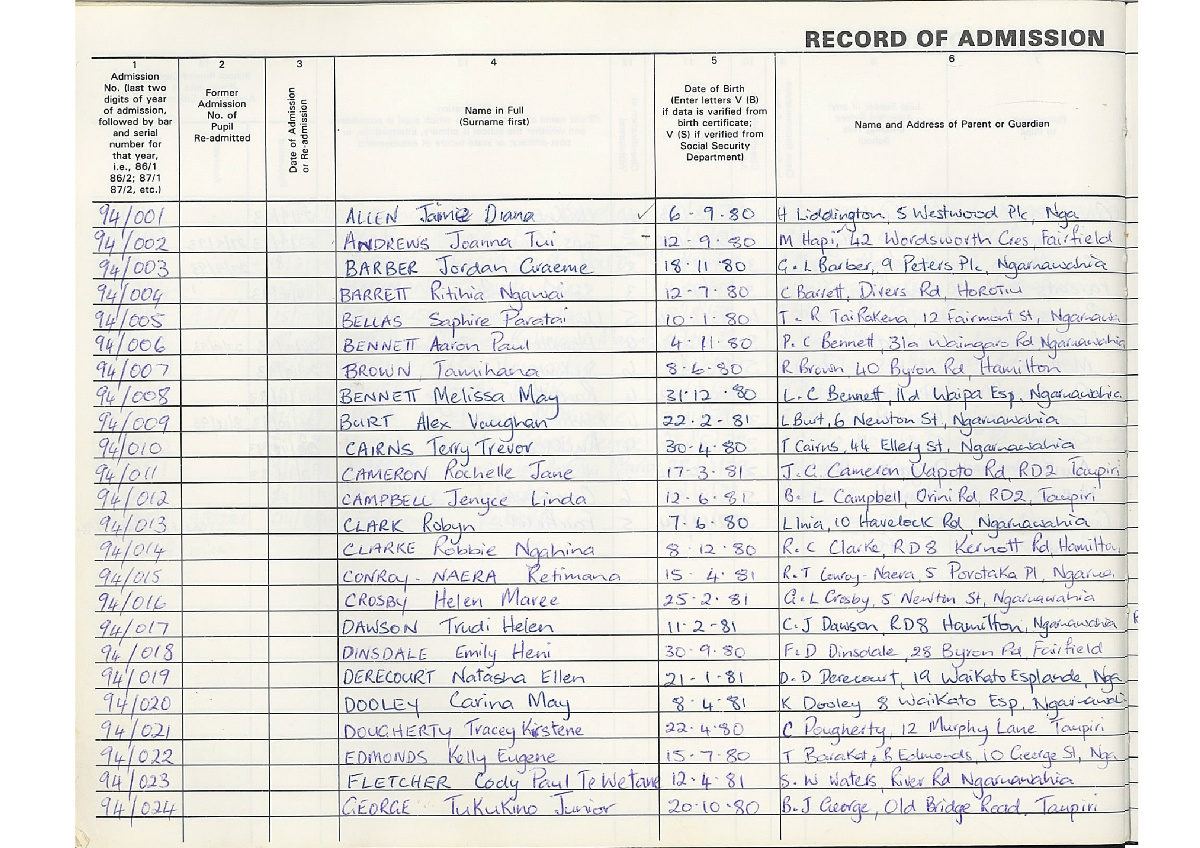 RECORD OF ADMISSION
1
Admission
No. (last two
digits of year
of admission,
followed by bar
and serial
number for
that year,
i.e., 86/1
86/2; 87/1
87/2, etc.)
2
Former
Admission
No. of
Pupil
Re-admitted
3
Date of Admission
or Re-admission
4
Name in Full
(Surname first)
5
Date of Birth
(Enter letters V (B)
if data is varified from
birth certificate;
V (S) if verified from
Social Security
Department)
6
Name and Address of Parent or Guardian
94/001 ALLEN Jamie Diana ✓ 6-9-80 H Liddington, 5 Westwood Plc, Nga
94/002 ANDREWS Joanna Tui - 12-9-80 M Hapi, 42 Wordsworth Cres, Fairfield
94/003 BARBER Jordan Graeme 18-11-80 G.L Barber, 9 Peters Plc, Ngaruawahia
94/004 BARRETT Ritihia Ngawai 12-7-80 C Barrett, Divers Rd, HOROTIU
94/005 BELLAS Saphire Paratai 10-1-80 T-R TaiRakena, 12 Fairmont St, Ngaruawa
94/006 BENNETT Aaron Paul 4-11-80 P.C Bennett, 31a Waingaro Rd Ngaruawahia
94/007 BROWN Tamihana 8-6-80 R Brown 40 Byron Rd, Hamilton
94/008 BENNETT Melissa May 31-12-80 L.C Bennett, 11d Waipa Esp, Ngaruawahia
94/009 BURT Alex Vaughan 22-2-81 L Burt, 6 Newton St, Ngaruawahia
94/010 CAIRNS Terry Trevor 30-4-80 T Cairns, 44 Ellery St, Ngaruawahia
94/011 CAMERON Rochelle Jane 17-3-81 J.G. Cameron Uapoto Rd, RD2 Taupiri
94/012 CAMPBELL Jenyce Linda 12-6-81 B-L Campbell, Orini Rd, RD2, Taupiri
94/013 CLARK Robyn 7-6-80 L Inia, 10 Havelock Rd, Ngaruawahia
94/014 CLARKE Robbie Ngahina 8-12-80 R.C Clarke, RD8 Kernott Rd, Hamilto
94/015 CONROY-NAERA Retimana 15-4-81 R.T Conroy-Naera, 5 Porotaka Pl, Ngarua
94/016 CROSBY Helen Maree 25-2-81 G.L Crosby, 5 Newton St, Ngaruawahia
94/017 DAWSON Trudi Helen 11-2-81 C.J Dawson, RD8 Hamilton, Ngaruawahia
94/018 DINSDALE Emily Heni 30-9-80 F.D Dinsdale, 28 Byron Rd, Fairfield
94/019 DERECOURT Natasha Ellen 21-1-81 D.D Derecourt, 19 Waikato Esplande, Nga
94/020 DOOLEY Carina May 8-4-81 K Dooley 8 Waikato Esp,
94/021 DOUGHERTY Tracey Kirstene 22-4-80 C Dougherty, 12 Murphy Lane Taupiri
94/022 EDMONDS Kelly Eugene 15-7-80 T Barakat, R Edmonds, 10 George St, Nga
94/023 FLETCHER Cody Paul TeWetane 12-4-81 S.W Waters, River Rd Ngaruawahia
94/024 GEORGE TuKuKino Junior 20-10-80 B.J George, Old Bridge Road, Taupiri